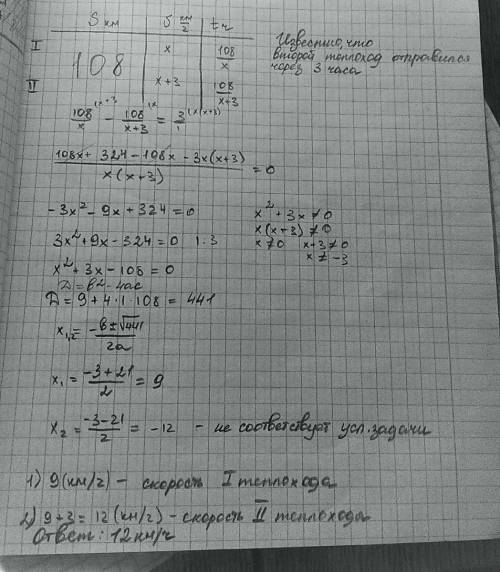 S км V км/ч t ч
I 108 x 108/x
II x+3 108/(x+3)
Известно, что
второй теплоход отправился
через 3 часа
108/x (x+3 - 108/(x+3) (x = 3/1 (x(x+3)
(108x + 324 - 108x - 3x(x+3))/(x(x+3)) = 0
-3x² - 9x + 324 = 0
3x² + 9x - 324 = 0 | : 3
x² + 3x - 108 = 0
D = b² - 4ac
D = 9 + 4·1·108 = 441
x² + 3x ≠ 0
x(x+3) ≠ 0
x ≠ 0 x+3 ≠ 0
x ≠ -3
x₁,₂ = (-b ± √441)/2a
x₁ = (-3+21)/2 = 9
x₂ = (-3-21)/2 = -12 - не соответствует усл. задачи
1) 9 (км/ч) - скорость I теплохода
2) 9+3 = 12 (км/ч) - скорость II теплохода
Ответ: 12 км/ч